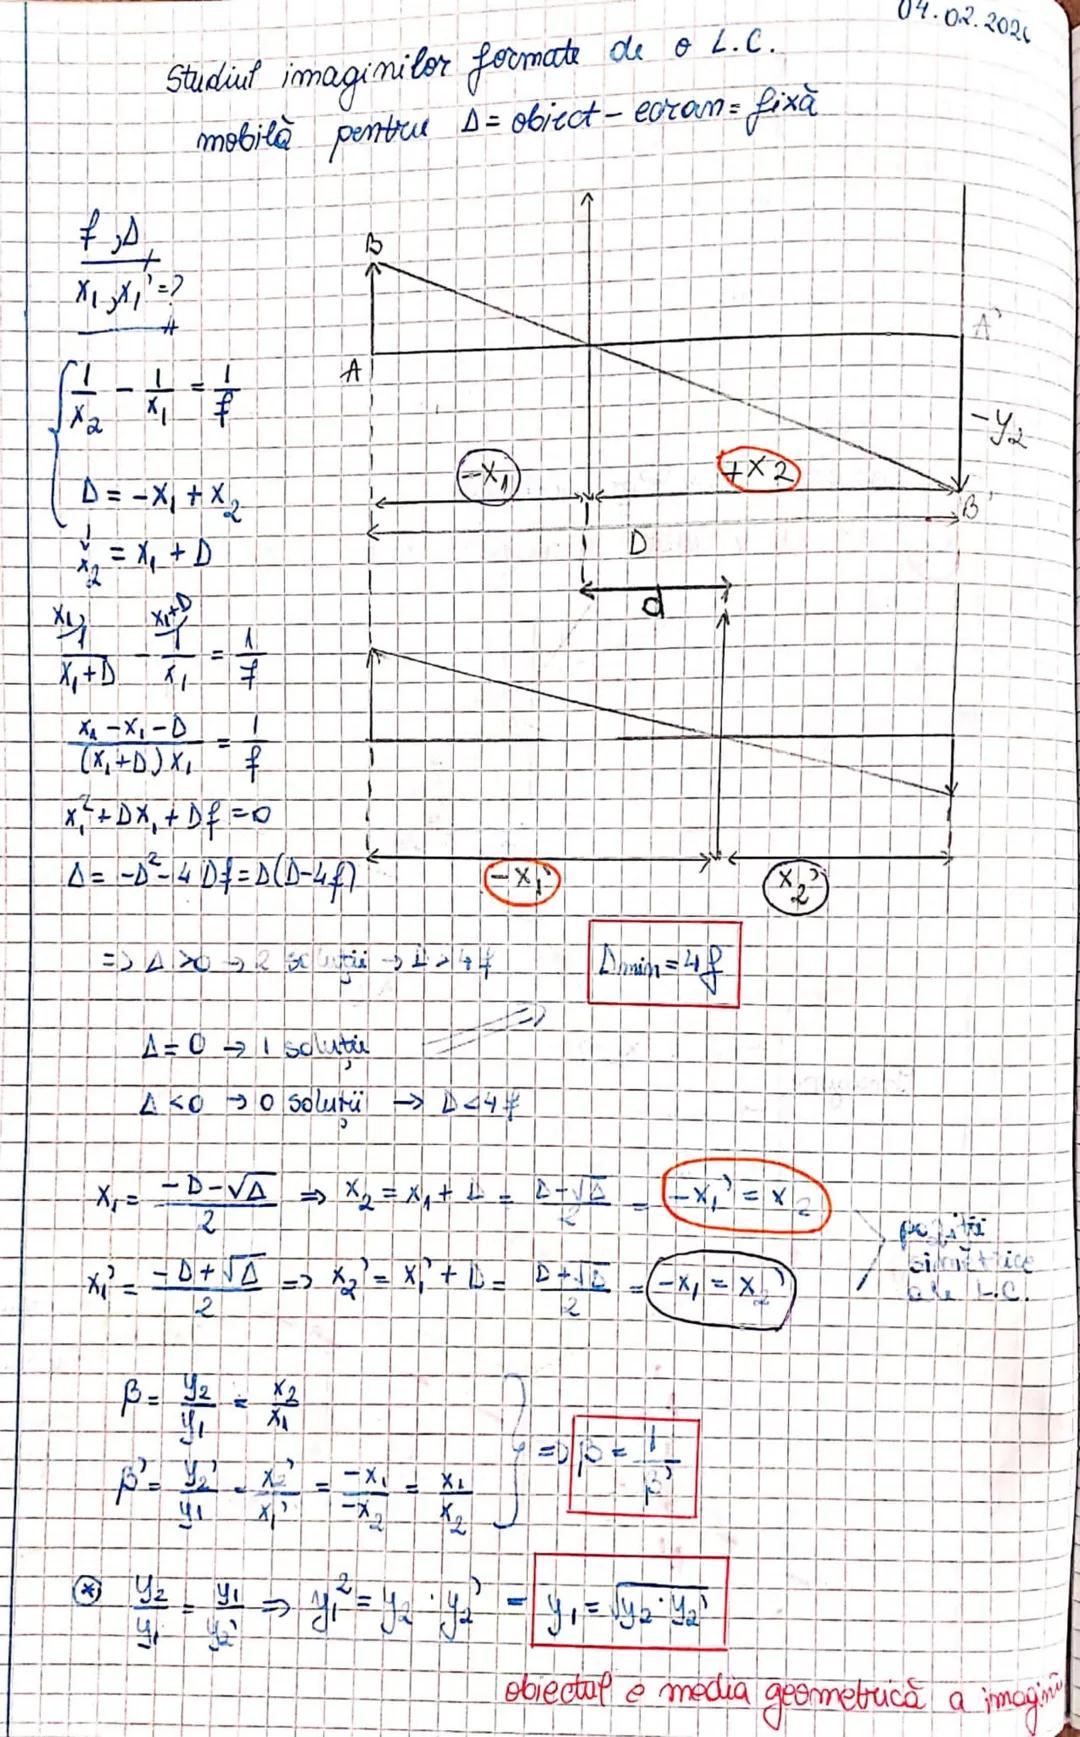 04.02.202
Studiul imaginilor formate de o L.C.
mobilă pentru D = obiect - ecran = fixă
f, D
x₁, x₁' = ?
1/x₂ - 1/x₁ = 1/f
D = -x₁ + x₂
x₂ = x₁ + D
x₁) 1/(x₁+D) - x₁+D) 1/x₁ = 1/f
(x₁ - x₁ - D)/((x₁+D)x₁) = 1/f
x₁² + Dx₁ + Df = 0
Δ = -D² - 4Df = D(D-4f)
B
A
A'
-y₂
B'
-x₁
+x₂
D
d
-x₁'
x₂'
=> Δ >0 → 2 soluții → D > 4f
Dmin = 4f
Δ = 0 → 1 soluție
Δ <0 → 0 soluții → D < 4f
x₁ = (-D-√Δ)/2 => x₂ = x₁ + D = (D-√Δ)/2 = -x₁' = x₂
x₁' = (-D+√Δ)/2 => x₂' = x₁' + D = (D+√Δ)/2 = -x₁ = x₂'
poziții
simetrice
ale L.C.
β = y₂/y₁ = x₂/x₁
β' = y₂'/y₁ = x₂'/x₁' = -x₁/-x₂ = x₁/x₂
=> β = 1/β'
* y₂/y₁ = y₁/y₂' => y₁² = y₂ · y₂' = y₁ = √y₂ · y₂'
obiectul e media geometrică a